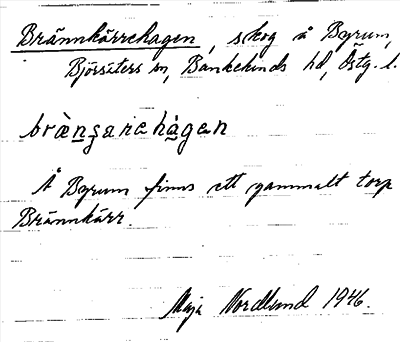 Brännkärrehagen, skog å Byrum,
Björsäters sn, Bankekinds hd, Östg. l.
Å Byrum finns ett gammalt torp
Brännkärr.
Maja Nordlund 1946.